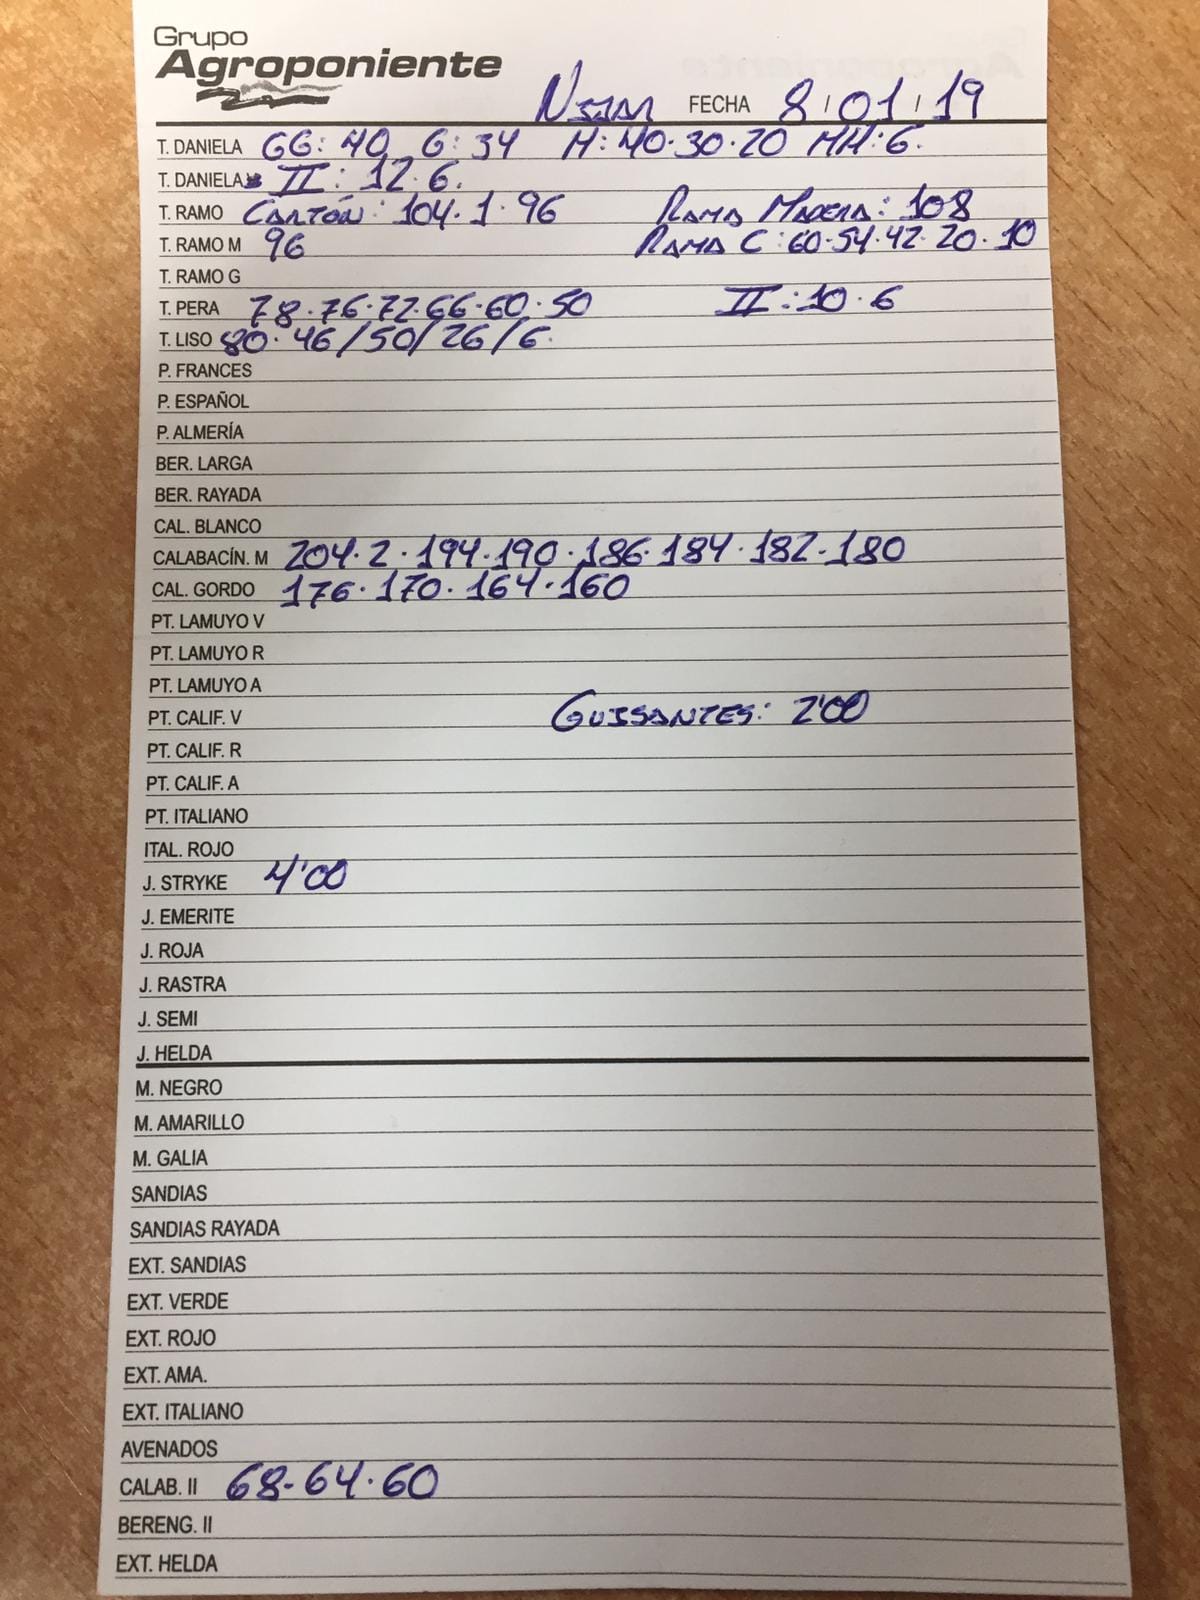 Grupo
Agroponiente
NIJAR FECHA 8/01/19
T. DANIELA GG: 40 G: 34 M: 40.30.20 MM: 6.
T. DANIELA II: 12.6.
T. RAMO CARTÓN: 104.1.96 RAMA MADERA: 108
T. RAMO M 96 RAMA C: 60.54.42.20.10
T. RAMO G
T. PERA 78.76.72.66.60.50 II: 10.6
T. LISO 80.46/50/26/6.
P. FRANCES
P. ESPAÑOL
P. ALMERÍA
BER. LARGA
BER. RAYADA
CAL. BLANCO
CALABACÍN. M 204.2.194.190.186.184.182.180
CAL. GORDO 176.170.164.160
PT. LAMUYO V
PT. LAMUYO R
PT. LAMUYO A
PT. CALIF. V GUISANTES: 2'00
PT. CALIF. R
PT. CALIF. A
PT. ITALIANO
ITAL. ROJO
J. STRYKE 4'00
J. EMERITE
J. ROJA
J. RASTRA
J. SEMI
J. HELDA
M. NEGRO
M. AMARILLO
M. GALIA
SANDIAS
SANDIAS RAYADA
EXT. SANDIAS
EXT. VERDE
EXT. ROJO
EXT. AMA.
EXT. ITALIANO
AVENADOS
CALAB. II 68-64.60
BERENG. II
EXT. HELDA